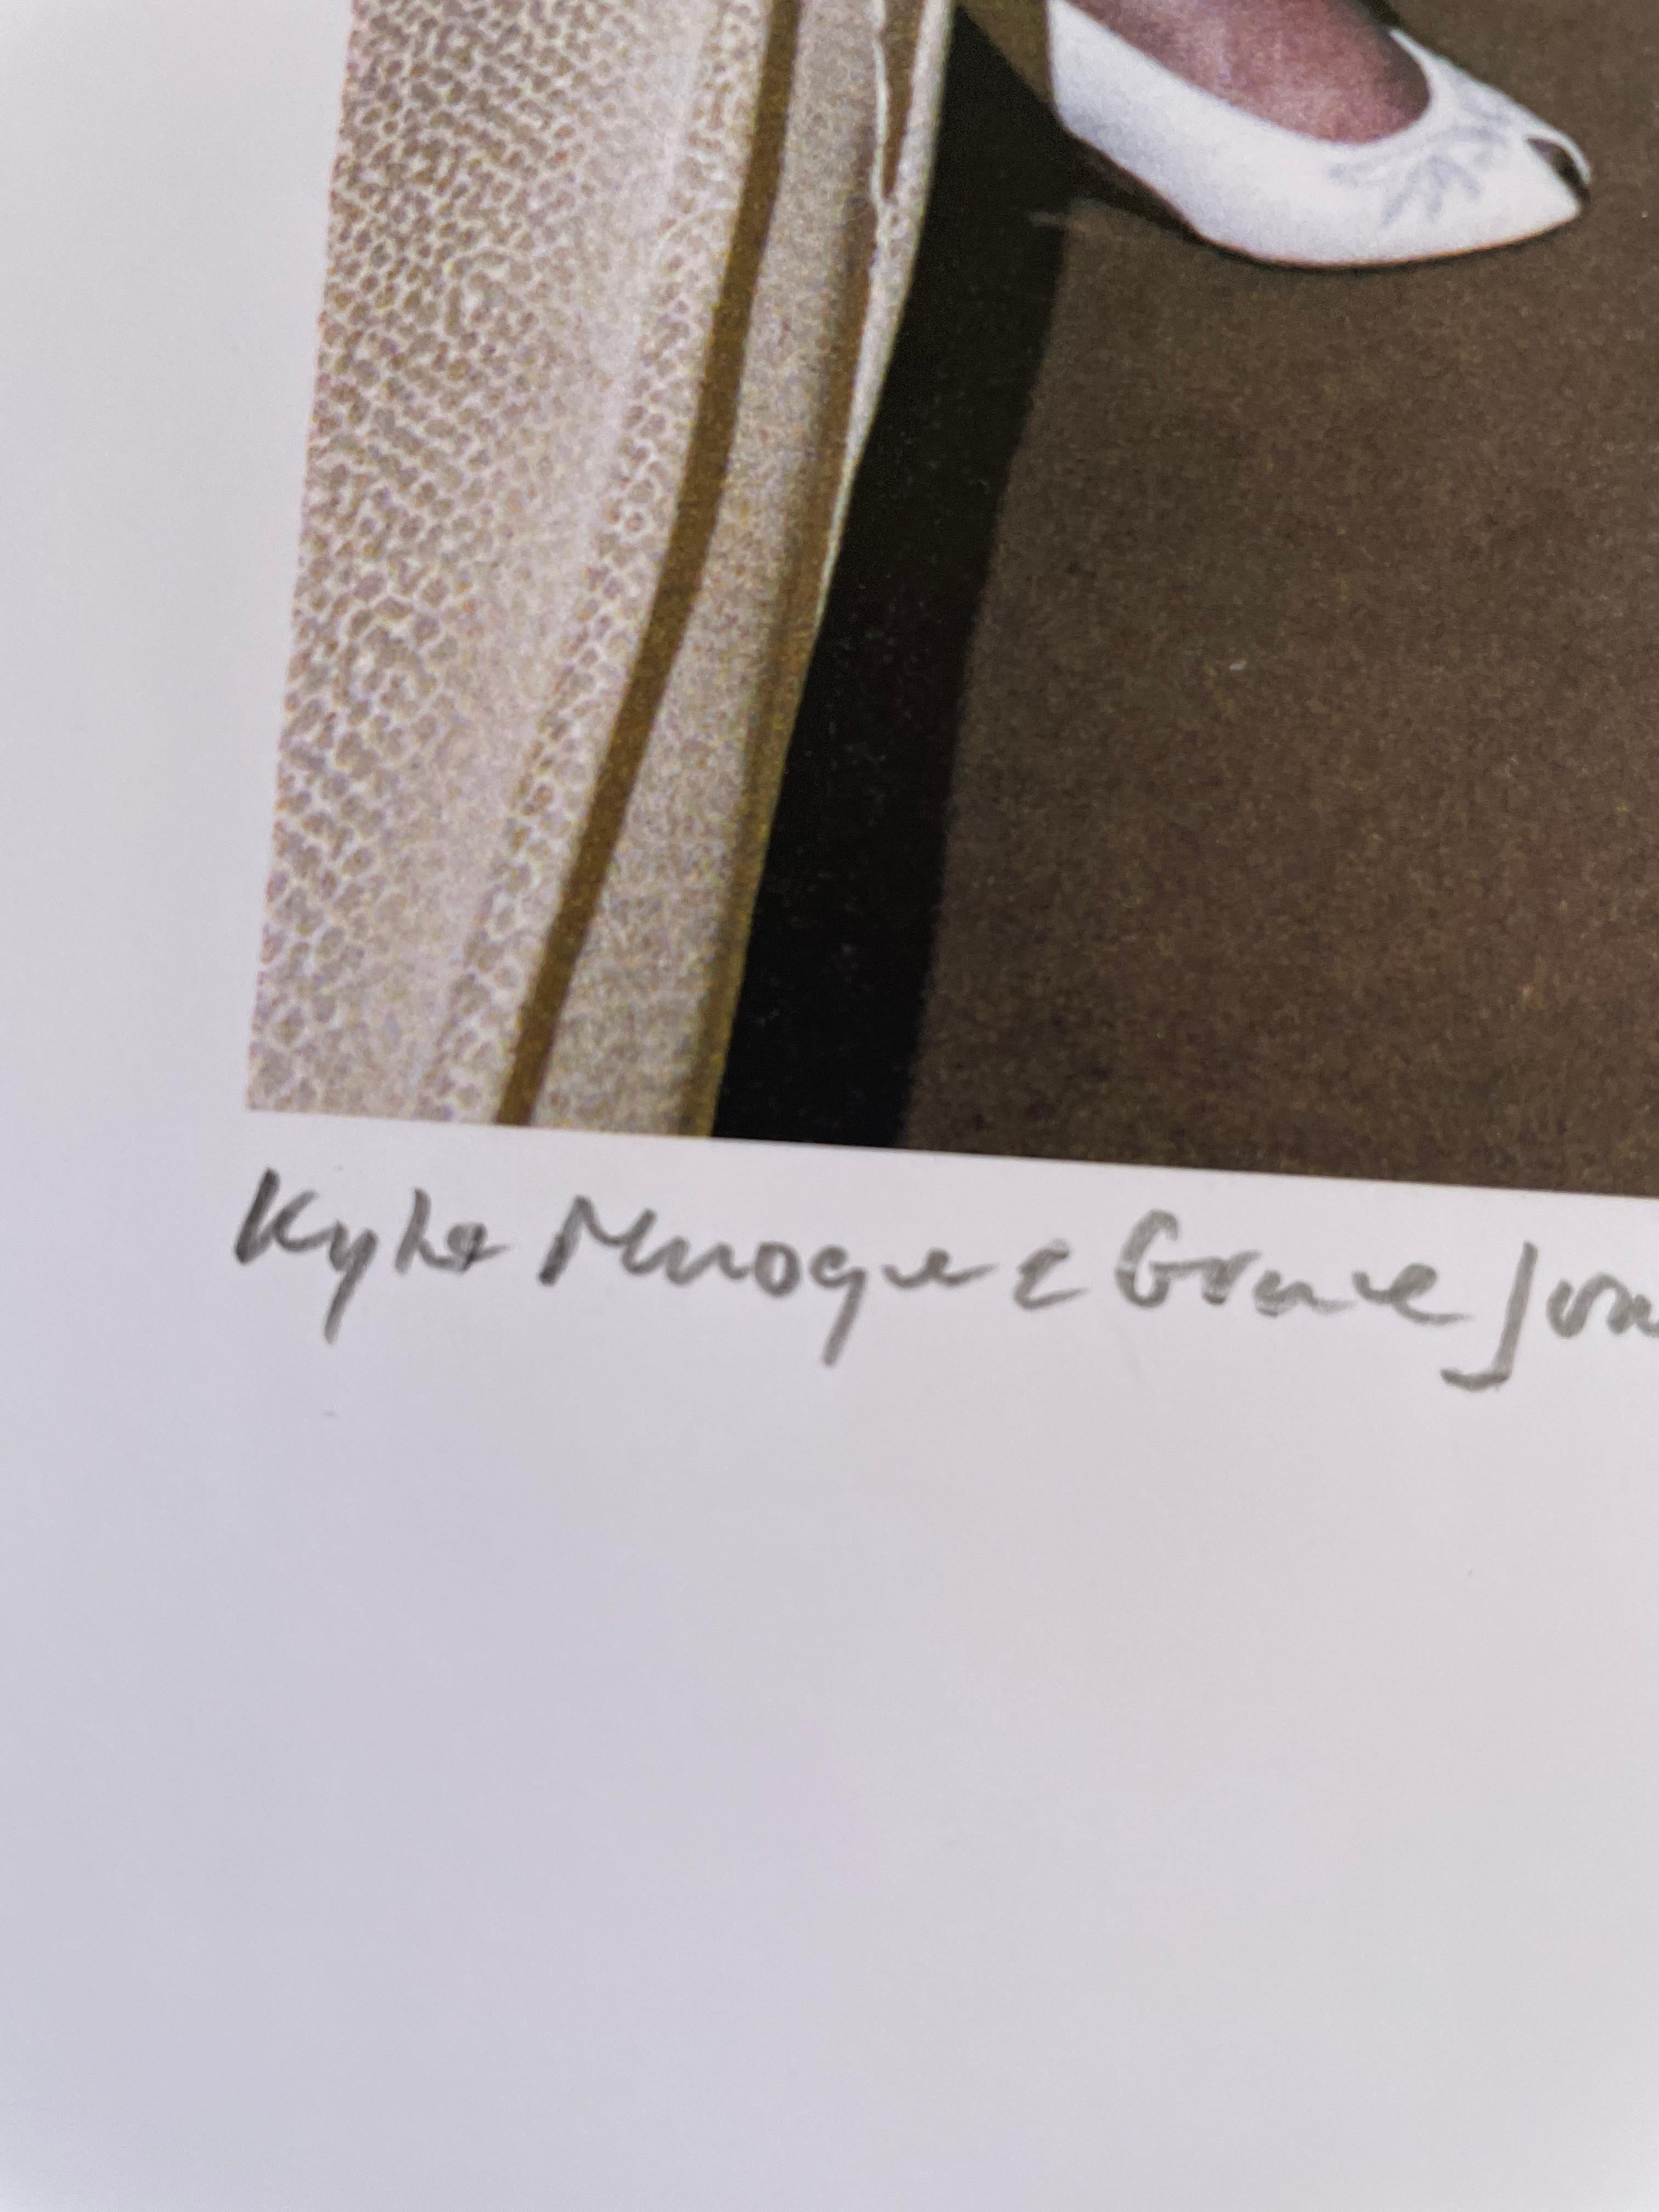 Kylie Minogue & Grace Jon